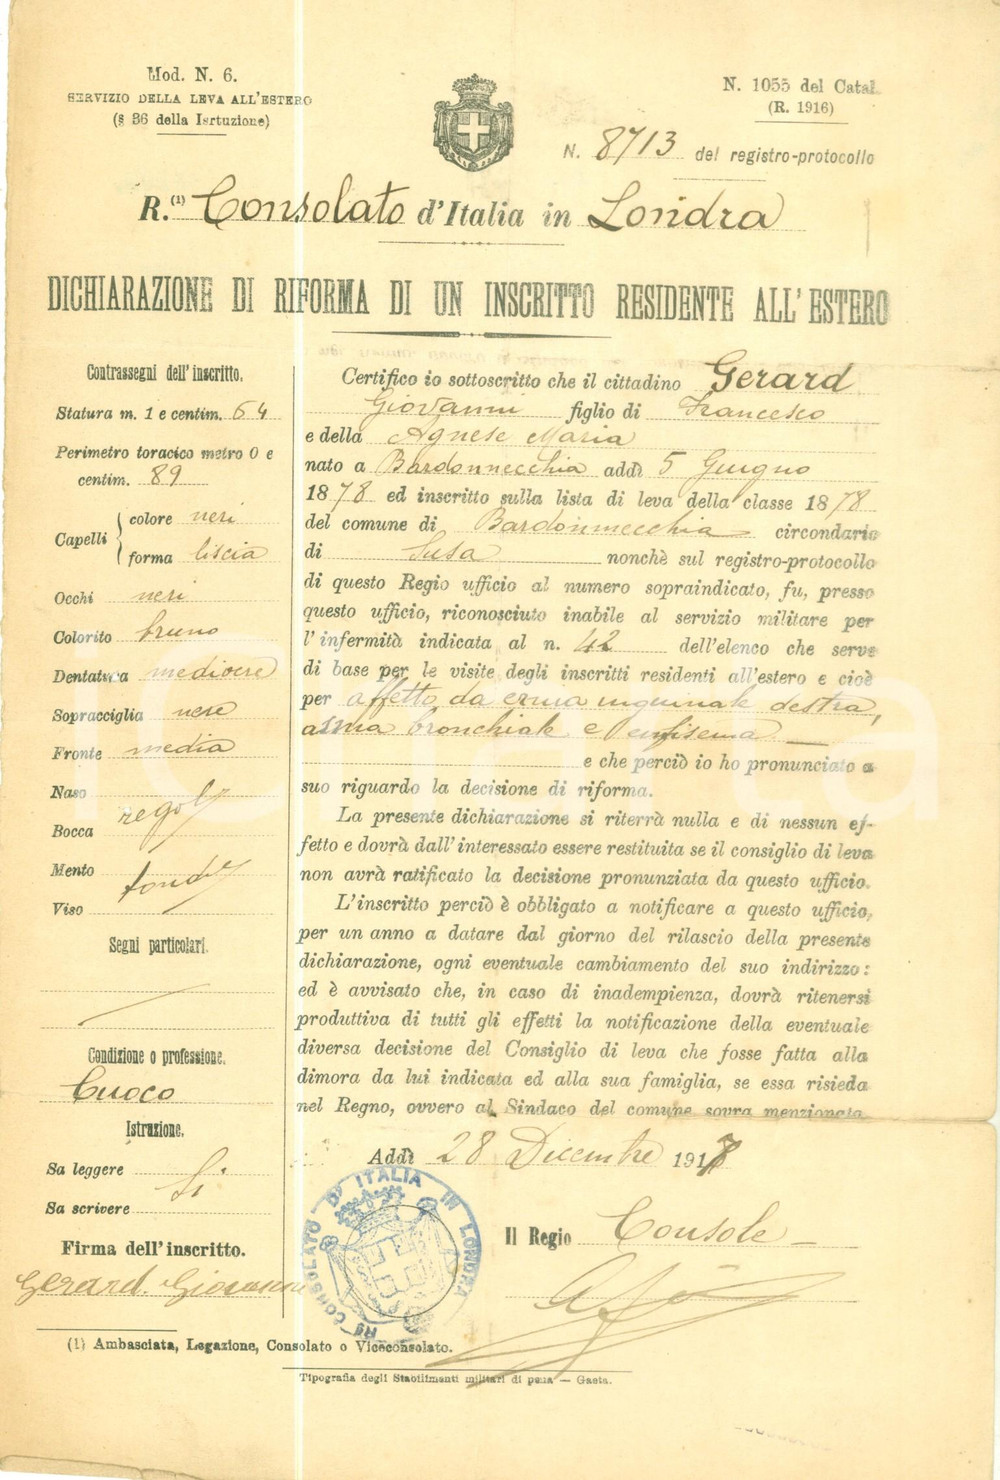 Mod. N. 6.
SERVIZIO DELLA LEVA ALL'ESTERO
(§ 36 della Isrtuzione)
N. 1055 del Catal
(R. 1916)
N. 8713 del registro-protocollo
R.(1) Consolato d'Italia in Londra
DICHIARAZIONE DI RIFORMA DI UN INSCRITTO RESIDENTE ALL'ESTERO
Contrassegni dell'inscritto.
Statura m. 1 e centim. 64
Perimetro toracico metro 0 e
centim. 89
Capelli
colore neri
forma liscia
Occhi neri
Colorito bruno
Dentatura mediocre
Sopracciglia nere
Fronte media
Naso
Bocca regol
Mento
Viso tondo
Segni particolari.
Condizione o professione.
Cuoco
Istruzione.
Sa leggere
Si
Sa scrivere
Firma dell'inscritto.
Gerard Giovanni
Certifico io sottoscritto che il cittadino Gerard
Giovanni figlio di Francesco
e della Agnese Maria
nato a Bardonnecchia addì 5 Giugno
1878 ed inscritto sulla lista di leva della classe 1878
del comune di Bardonnecchia circondario
di Susa nonchè sul registro-protocollo
di questo Regio ufficio al numero sopraindicato, fu, presso
questo ufficio, riconosciuto inabile al servizio militare per
l'infermità indicata al n. 42 dell'elenco che serve
di base per le visite degli inscritti residenti all'estero e cioè
per affetto da ernia inguinale destra,
asma bronchiale e enfisema
e che perciò io ho pronunciato a
suo riguardo la decisione di riforma.
La presente dichiarazione si riterrà nulla e di nessun ef-
fetto e dovrà dall'interessato essere restituita se il consiglio di leva
non avrà ratificato la decisione pronunziata da questo ufficio.
L'inscritto perciò è obbligato a notificare a questo ufficio,
per un anno a datare dal giorno del rilascio della presente
dichiarazione, ogni eventuale cambiamento del suo indirizzo:
ed è avvisato che, in caso di inadempienza, dovrà ritenersi
produttiva di tutti gli effetti la notificazione della eventuale
diversa decisione del Consiglio di leva che fosse fatta alla
dimora da lui indicata ed alla sua famiglia, se essa risieda
nel Regno, ovvero al Sindaco del comune sovra menzionato.
Addì 28 Dicembre 1917
Rº CONSOLATO D'ITALIA IN LONDRA
Il Regio Console
(1) Ambasciata, Legazione, Consolato o Viceconsolato.
Tipografia degli Stabilimenti militari di pena — Gaeta.